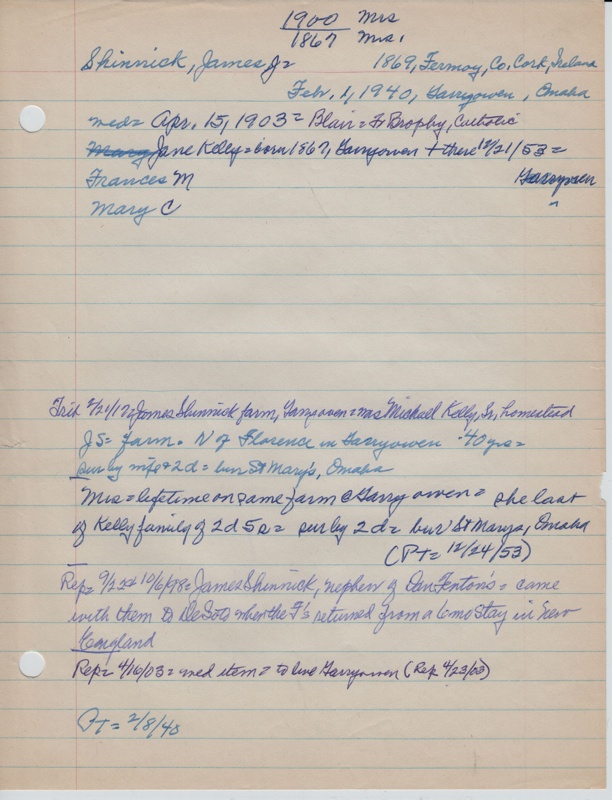 1900 Mrs
1867 Mrs.
Shinnick, James Jr 1869, Fermoy, Co. Cork, Ireland
Febr. 1, 1940, Garryowen, Omaha
med= Apr. 15, 1903= Blair= Fr Brophy, Catholic
Mary Jane Kelly= born 1867, Garryowen + there 12/21/53=
Frances M Garryowen
Mary C
Trib 2/21/17= James Shinnick farm, Garryowen= was Michael Kelly, Sr, homestead
JS= farm= N of Florence in Garryowen 40 yrs=
sur by & 2d= bur St Mary's, Omaha
Mrs= lifetime on same farm @ Garryowen= she last
of Kelly family of 2d 5s= sur by 2d= bur St Marys, Omaha
(PT= 12/24/53)
Rep= 9/22 & 10/6/98= James Shinnick, nephew of Dan Fenton's= came
with them to DeSoto when the F's returned from a 6mo stay in New
England
Rep= 4/16/03= med item= to live Garryowen (Rep 4/23/03)
PT= 2/8/40